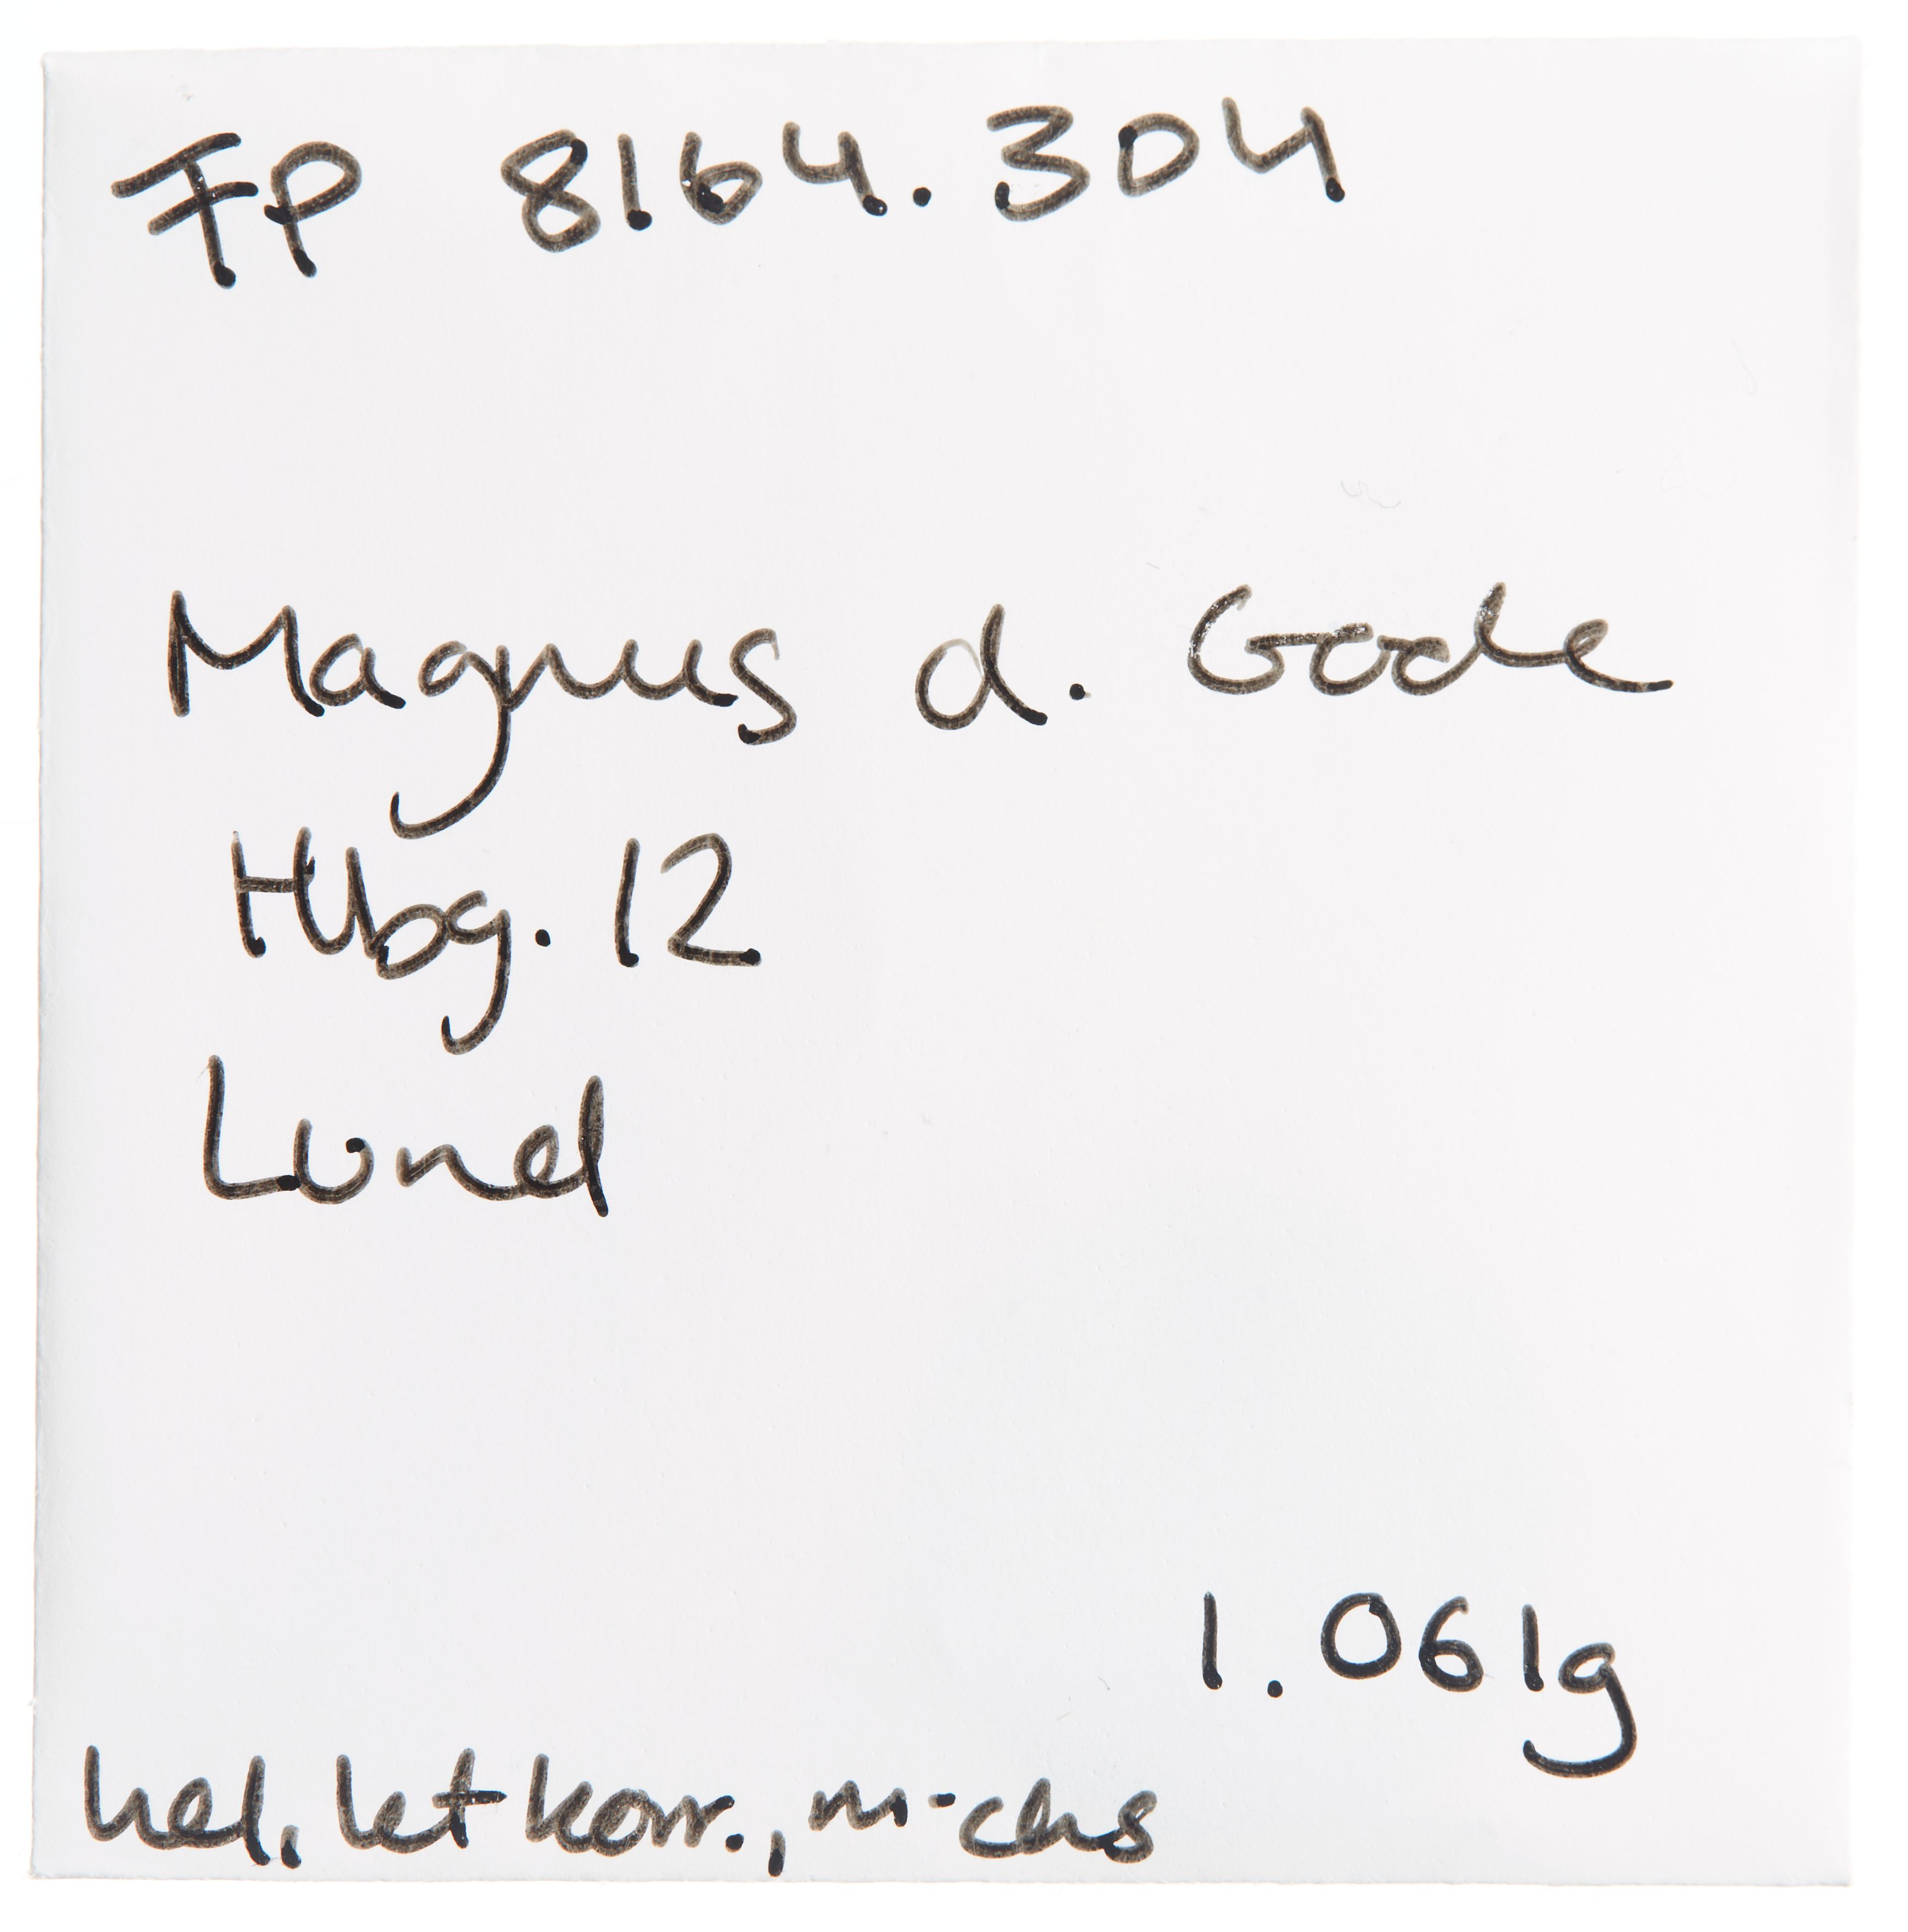 FP 8164.304
Magnus d. Gode
Hbg. 12
Lund
1.061g
hel, let korr.,